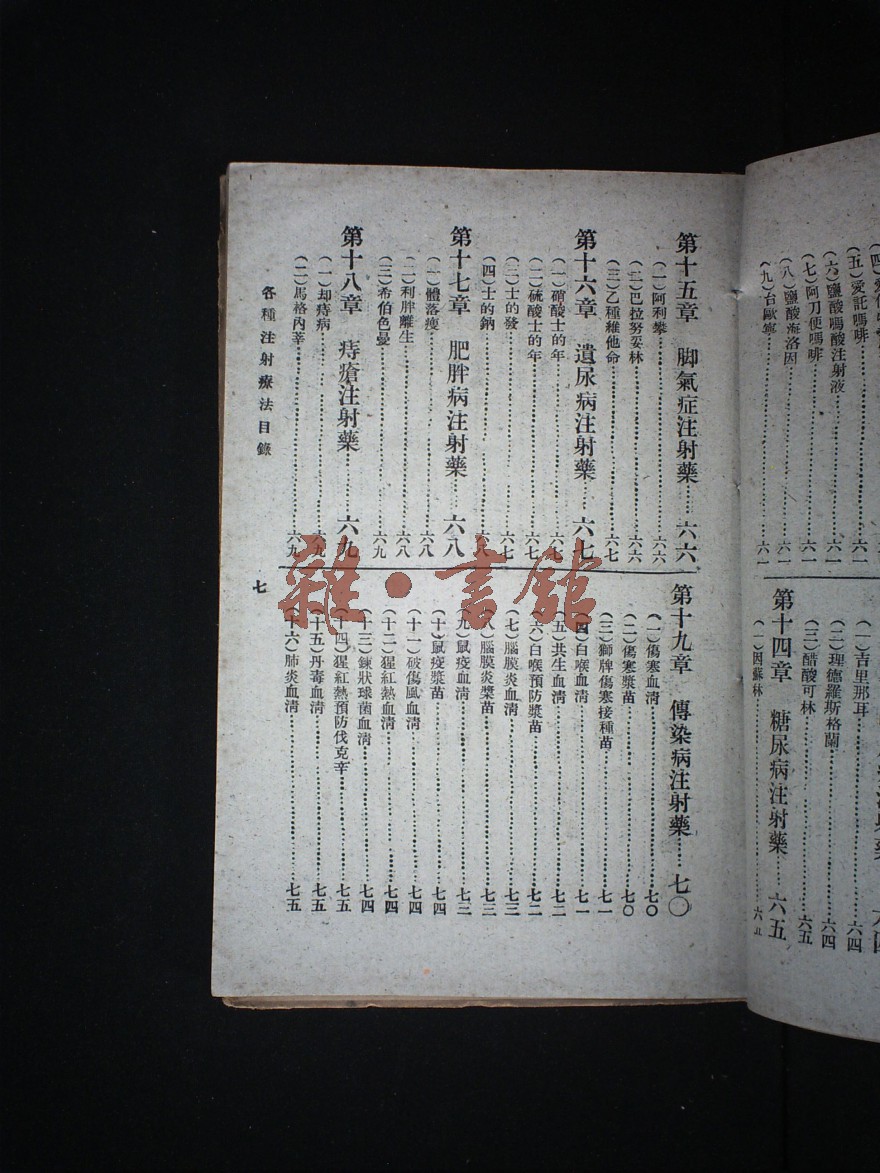 (五)愛託嗎啡……六一
(六)鹽酸嗎酸注射液……六一
(七)阿刀便嗎啡……六一
(八)鹽酸海洛因……六一
(九)台歐寧……六一
(一)吉里那耳……六四
(二)理德羅斯格蘭……六四
(三)醋酸可林……六五
第十四章 糖尿病注射藥……六五
(一)因蘇林
第十五章 脚氣症注射藥……六六
(一)阿利攀……六六
(二)巴拉努妥林……六六
(三)乙種維他命……六七
第十六章 遺尿病注射藥……六七
(一)硝酸士的年……六七
(二)硫酸士的年……六七
(三)士的發……六七
(四)士的鈉……六八
第十七章 肥胖病注射藥……六八
(一)體落瘦……六八
(二)利胖離生……六八
(三)希伯色曼……六九
第十八章 痔瘡注射藥……六九
(一)却痔病……六九
(二)馬格內莘……六九
第十九章 傳染病注射藥……七〇
(一)傷寒血淸……七〇
(二)傷寒漿苗……七〇
(三)獅牌傷寒接種苗……七一
(四)白喉血淸……七一
(五)共生血淸……七二
(六)白喉預防漿苗……七二
(七)腦膜炎血淸……七三
(八)腦膜炎漿苗……七三
(九)鼠疫血淸……七三
(十)鼠疫漿苗……七四
(十一)破傷風血淸……七四
(十二)猩紅熱血淸……七四
(十三)鍊狀球菌血淸……七四
(十四)猩紅熱預防伐克辛……七五
(十五)丹毒血淸……七五
(十六)肺炎血淸……七五
各種注射療法目錄
七
雜·書館